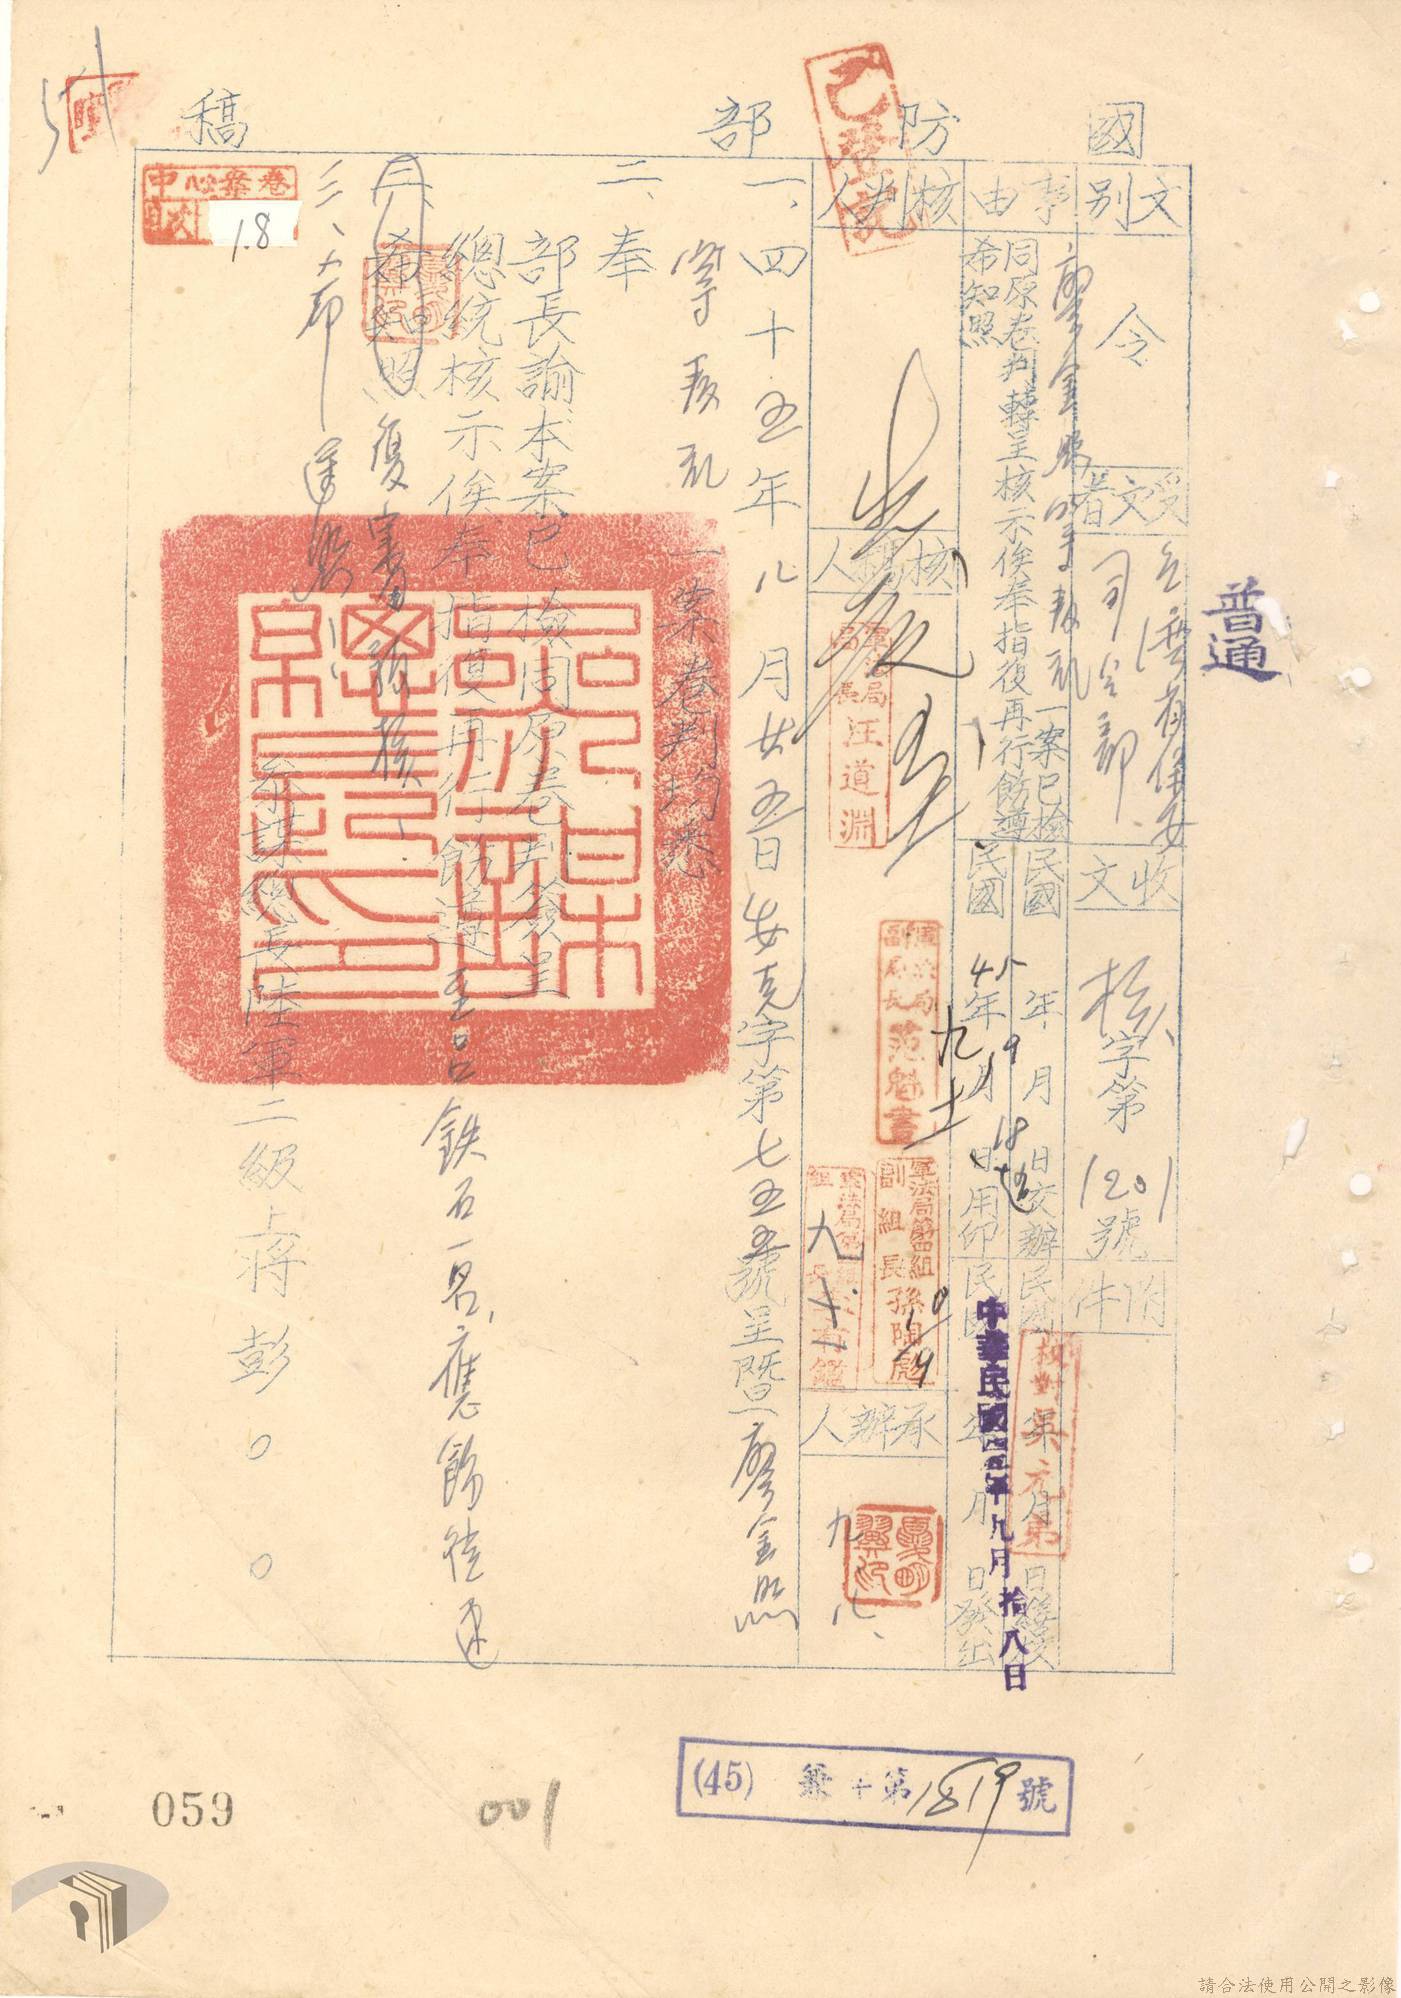 國防部稿
普通
已登記
文別
令
受文者
台灣省保安
司令部
收文
核字第1201號
附件
事由
廖金照等叛亂一案已檢
同原卷判轉呈核示俟奉指復再行飭遵
希知照
民國 年 月 日交辦
民國45年9月18日用印
民國 年 月 日繕校
民國 年 月 日發出
中華民國四五年九月拾八日
校對吳元弟
核判人
核稿人
軍法局
局長汪道淵
軍法局
副局長范魁書
九、十一
軍法局第四組
副組長孫陶彪
九、十
承辦人
九、八、
一、四十五年八月廿五日安克字第七五五號呈暨廖金照
等叛亂一案卷判均悉
二、奉
部長諭本案已檢同原卷判簽呈
總統核示俟奉指復再行飭遵至呂鉄石一名,應飭從速
復審報核、
三、希知照
三、
參謀總長陸軍二級上將彭○○
中心案卷
1.8
(45) 第1819號
059
001
請合法使用公開之影像